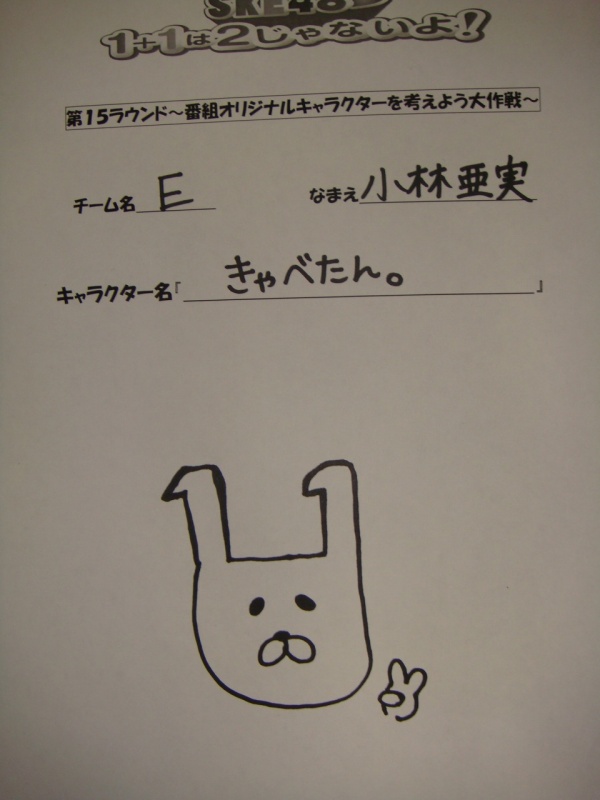 SKE48
1+1は2じゃないよ！
第15ラウンド～番組オリジナルキャラクターを考えよう大作戦～
チーム名 E なまえ 小林亜実
キャラクター名『 きゃべたん。 』